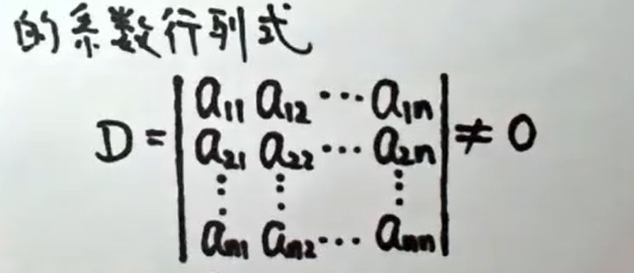 的系数行列式
D = | a₁₁ a₁₂ ⋯ a₁ₙ |
| a₂₁ a₂₂ ⋯ a₂ₙ | ≠ 0
| ⋮ ⋮ ⋮ |
| aₙ₁ aₙ₂ ⋯ aₙₙ |